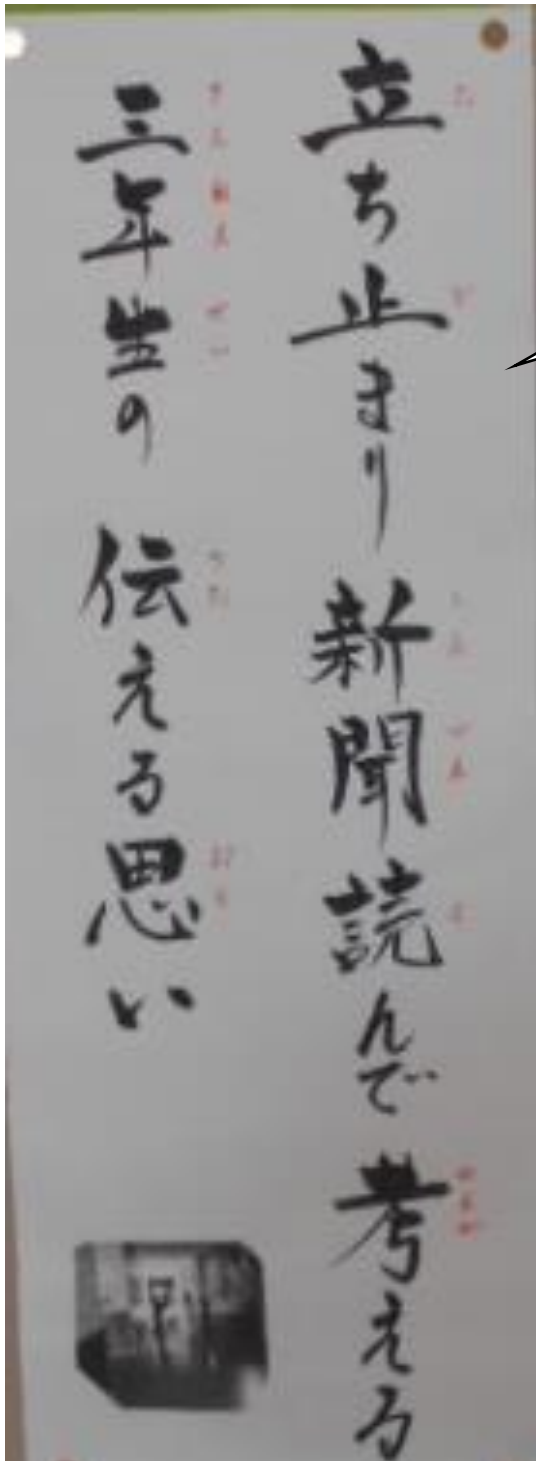 立ち止まり新聞読んで考える
三年生の伝える思い